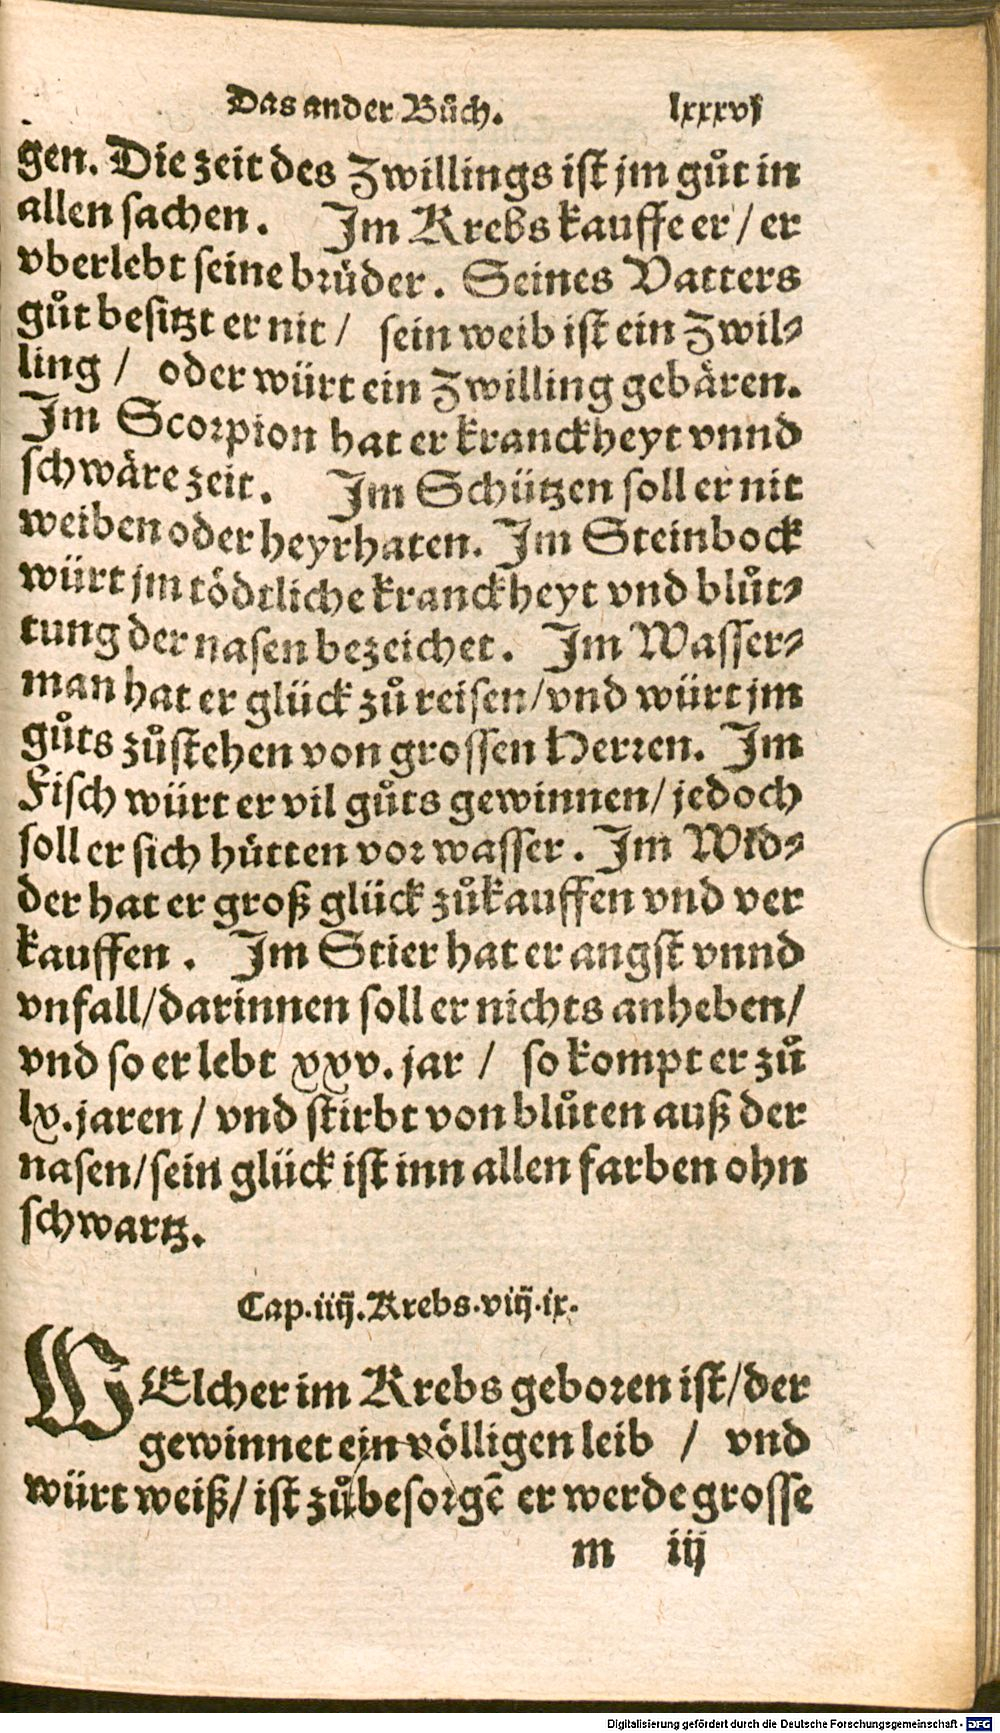 Das ander Bůch. lxxxvj
gen. Die zeit des Zwillings ist jm gůt in
allen sachen. Im Krebs kauffe er / er
vberlebt seine brüder. Seines Vatters
gůt besitzt er nit / sein weib ist ein Zwil⸗
ling / oder würt ein Zwilling gebären.
Im Scorpion hat er kranckheyt vnnd
schwäre zeit. Im Schützen soll er nit
weiben oder heyrhaten. Im Steinbock
würt jm tödtliche kranckheyt vnd blůt⸗
tung der nasen bezeichet. Im Wasser⸗
man hat er glück zů reisen / vnd würt jm
gůts zůstehen von grossen Herren. Im
Fisch würt er vil gůts gewinnen / jedoch
soll er sich hütten vor wasser. Im Wid⸗
der hat er groß glück zůkauffen vnd ver
kauffen. Im Stier hat er angst vnnd
vnfall / darinnen soll er nichts anheben /
vnd so er lebt xxv. jar / so kompt er zů
lx. jaren / vnd stirbt von blůten auß der
nasen / sein glück ist inn allen farben ohn
schwartz.
Cap. iiij. Krebs. viij. ix.
WElcher im Krebs geboren ist / der
gewinnet ein völligen leib / vnd
würt weiß / ist zůbesorgē er werde grosse
m iij
Digitalisierung gefördert durch die Deutsche Forschungsgemeinschaft - DFG